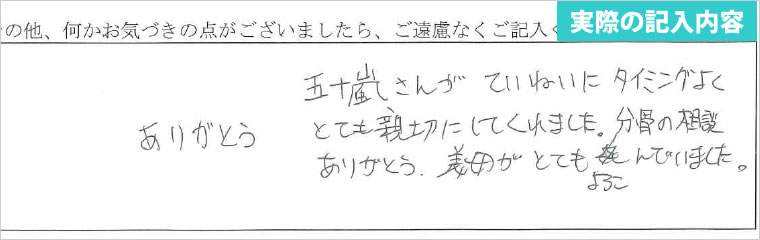 実際の記入内容
の他、何かお気づきの点がございましたら、ご遠慮なくご記入く
ありがとう
五十嵐さんが ていねいに タイミングよく
とても親切にしてくれました。分骨の相談
ありがとう。義母がとても喜んでいました。
よろこ